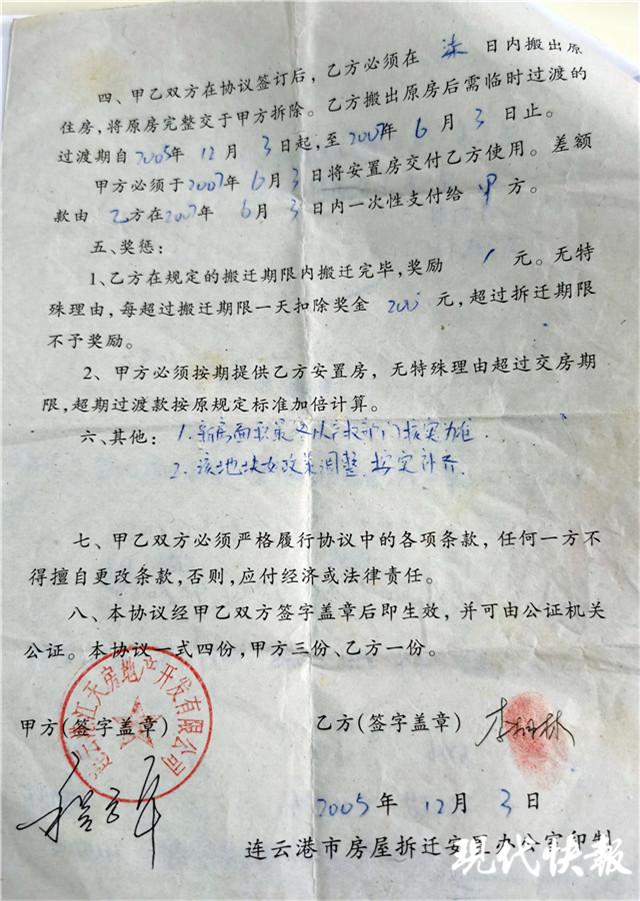 四、甲乙双方在协议签订后，乙方必须在 柒 日内搬出原
住房，将原房完整交于甲方拆除。乙方搬出原房后需临时过渡的
过渡期自2005年 12 月 3 日起，至2007年 6 月 3 日止。
甲方必须于2007年 6月 3日将安置房交付乙方使用。差额
款由 乙方在2007年 6月 3日内一次性支付给 甲 方。
五、奖惩：
1、乙方在规定的搬迁期限内搬迁完毕，奖励 / 元。无特
殊理由，每超过搬迁期限一天扣除奖金 200 元，超过拆迁期限
不予奖励。
2、甲方必须按期提供乙方安置房，无特殊理由超过交房期
限，超期过渡款按原规定标准加倍计算。
六、其他：1.新房面积最终以产权部门核实为准.
2.该地块如政策调整.按实补齐.
七、甲乙双方必须严格履行协议中的各项条款，任何一方不
得擅自更改条款，否则，应付经济或法律责任。
八、本协议经甲乙双方签字盖章后即生效，并可由公证机关
公证。本协议一式四份，甲方三份、乙方一份。
江天房地产开发有限公司
甲方(签字盖章)
乙方(签字盖章) 李 林
2005 年 12 月 3 日
连云港市房屋拆迁安置办公室印制
现代快報